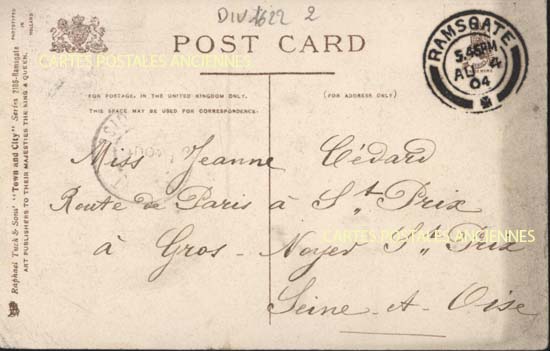 DIV 1622 2
CARTES POSTALES ANCIENNES
POST CARD
RAMSGATE
5.45PM
AU 4
04
FOR POSTAGE, IN THE UNITED KINGDOM ONLY,
THIS SPACE MAY BE USED FOR CORRESPONDENCE.
(FOR ADDRESS ONLY)
Miss Jeanne Cédard
Route de Paris à St Prix
CARTES POSTALES ANCIENNES
à Gros-Noyer St Prix
Seine-et-Oise
Raphael Tuck & Sons' "Town and City" Series 2105-Ramsgate
ART PUBLISHERS TO THEIR MAJESTIES THE KING & QUEEN.
PHOTOTYPED IN HOLLAND